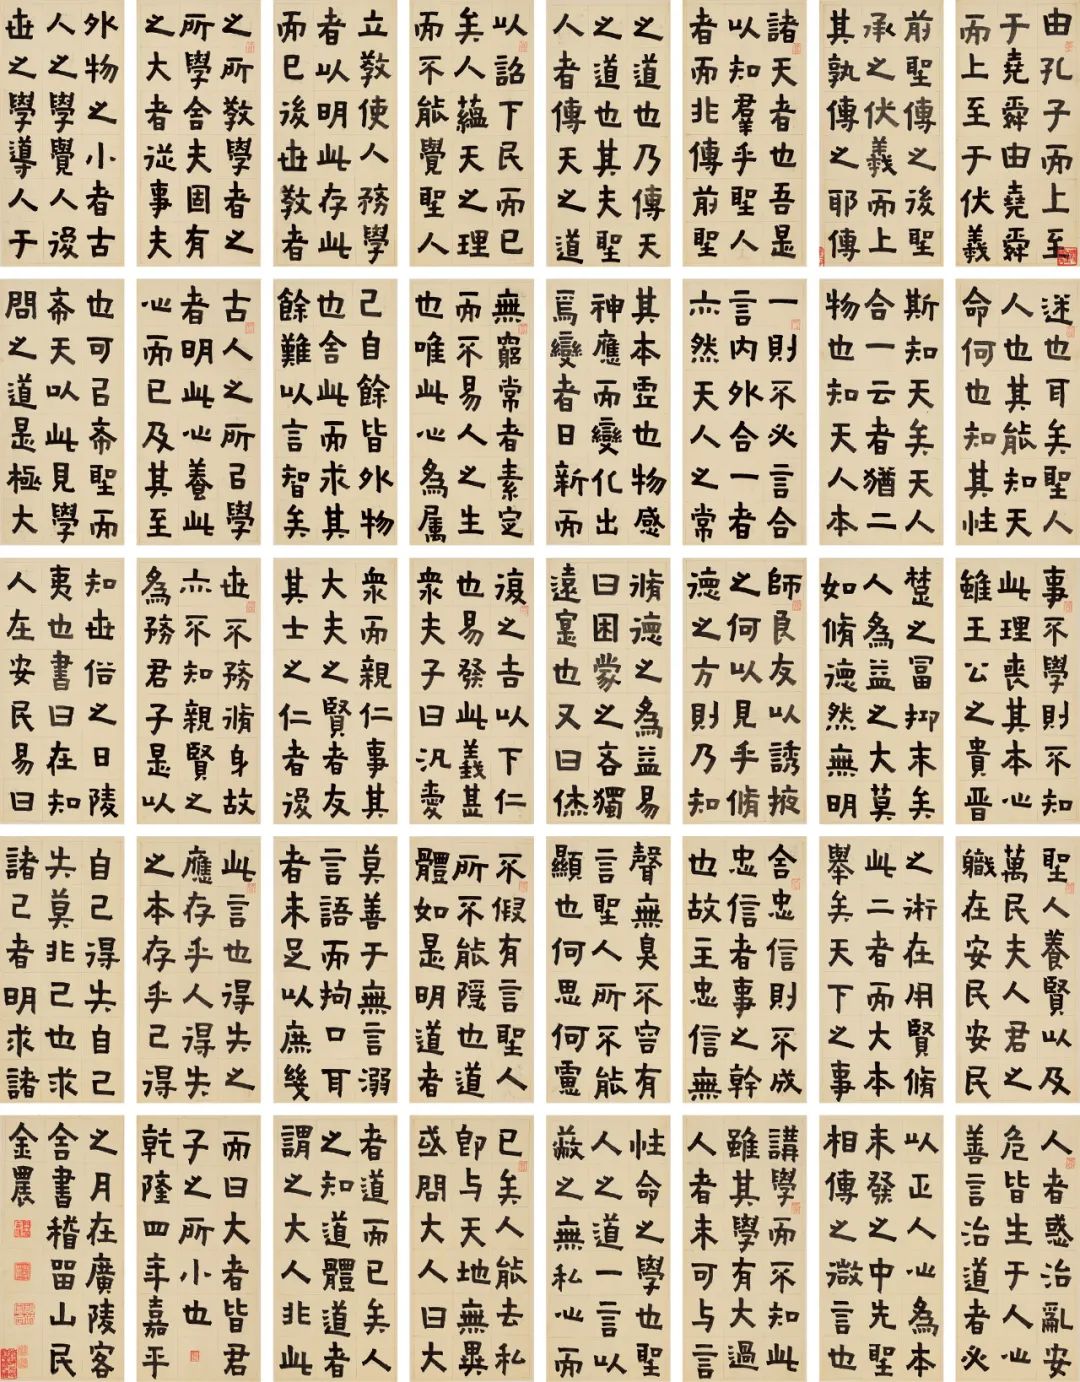 由孔子而上至
于堯舜由堯舜
而上至于伏羲
前聖傳之後聖
承之伏義而上
其孰傳之耶傳
諸天者也吾是
以知羣乎聖人
者而非傳前聖
之道也乃傳天
之道也其夫聖
人者傳天之道
以詔下民而已
矣人蘊天之理
而不能覺聖人
立教使人務學
者以明此存此
而已後世教者
之所教學者之
所學舍夫固有
之大者從事夫
外物之小者古
人之學覺人後
世之學導人于
迷也耳矣聖人
人也其能知天
命何也知其性
斯知天矣天人
合一云者猶二
物也知天人本
一則不必言合
言内外合一者
亦然天人之常
其本虛也物感
神應而變化出
焉變者日新而
無窮常者素定
而不易人之生
也唯此心為属
己自餘皆外物
也舍此而求其
餘難以言智矣
古人之所㠯學
者明此心養此
心而已及其至
也可㠯希聖而
希天以此見學
問之道是極大
事不學則不知
此理喪其本心
雖王公之貴晉
楚之富抑末矣
人為益之大莫
如脩德然無明
師良友以誘掖
之何以見乎脩
德之方則乃知
脩德之為益易
曰困蒙之吝獨
遠寔也又曰休
復之吉以下仁
也易發此義甚
衆夫子曰汎愛
衆而親仁事其
大夫之賢者友
其士之仁者後
世不務脩身故
亦不知親賢之
為務君子是以
知世俗之日陵
夷也書曰在知
人在安民易曰
聖人養賢以及
萬民夫人君之
職在安民安民
之術在用賢脩
此二者而大本
舉矣天下之事
舍忠信則不成
忠信者事之幹
也故主忠信無
聲無臭不容有
言聖人所不能
顯也何思何慮
不假有言聖人
所不能隱也道
體如是明道者
莫善于無言溺
言語而拘口耳
者未足以庶幾
此言也得失之
應存乎人得失
之本存乎己得
自己得失自己
失莫非己也求
諸己者明求諸
人者惑治亂安
危皆生于人心
善言治道者必
以正人心為本
未發之中先聖
相傳之微言也
講學而不知此
雖其學有大過
人者未可与言
性命之學也聖
人之道一言以
蔽之無私心而
已矣人能去私
即与天地無異
或問大人曰大
者道而已矣人
之知道體道者
謂之大人非此
而曰大者皆君
子之所小也
乾隆四年嘉平
之月在廣陵客
舍書稽留山民
金農